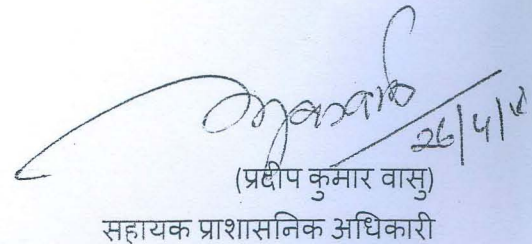 26/4/
(प्रदीप कुमार वासु)
सहायक प्राशासनिक अधिकारी